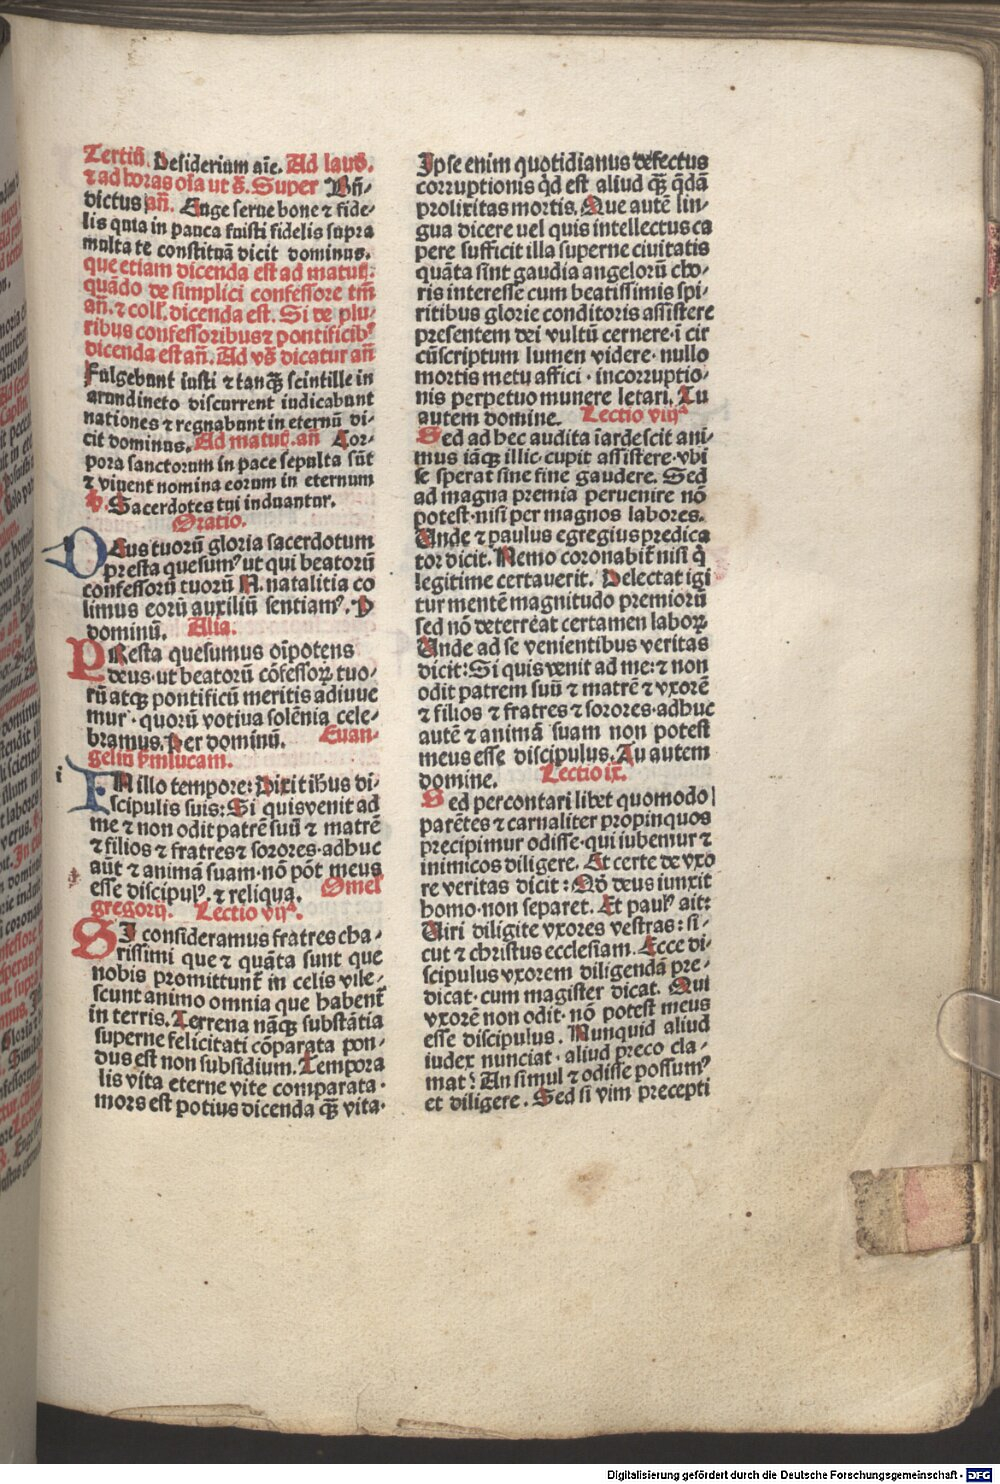 Tertiũ. Desiderium aĩe. Ad laud.
⁊ ad horas oĩa ut s̃. Super Bñ-
dictus añ. Euge serue bone ⁊ fide-
lis quia in pauca fuisti fidelis supra
multa te constituã dicit dominus.
que etiam dicenda est ad matut.
quãdo de simplici confessore tm̃
añ. ⁊ coll. dicenda est. Si de plu-
ribus confessoribus ⁊ pontificibꝰ
dicenda est añ. Ad vs̃ dicatur añ
Fulgebunt iusti ⁊ tanqꝫ scintille in
arundineto discurrent iudicabunt
nationes ⁊ regnabunt in eternũ di-
cit dominus. Ad matut. añ Cor-
pora sanctorum in pace sepulta sũt
⁊ viuent nomina eorum in eternum
v̓. Sacerdotes tui induantur.
Oratio.
DEus tuorũ gloria sacerdotum
presta quesumꝰ ut qui beatorũ
confessorũ tuorũ N. natalitia co
limus eorũ auxiliũ sentiamꝰ. P
dominũ. Alia.
PResta quesumus oĩpotens
deus· ut beatorũ cõfessoꝝ tuo-
rũ atqꝫ pontificũ meritis adiuue
mur· quorũ votiua solẽnia cele-
bramus. Per dominũ. Euan-
geliũ s̃m lucam.
i
IN illo tempore: Dixit ihũs di-
scipulis suis: Si quis venit ad
me ⁊ non odit patrẽ suũ ⁊ matrẽ
⁊ filios ⁊ fratres ⁊ sorores· adhuc
aũt ⁊ animã suam· nõ põt meus
esse discipulꝰ. ⁊ reliqua. Omel
gregorij. Lectio vijᵃ.
SI consideramus fratres cha-
rissimi que ⁊ quãta sunt que
nobis promittunt̃ in celis vile-
scunt animo omnia que habent̃
in terris. Terrena nãqꝫ substãtia
superne felicitati cõparata pon-
dus est non subsidium. Tempora
lis vita eterne vite comparata·
mors est potius dicenda qꝫ vita·
Ipse enim quotidianus defectus
corruptionis qd̃ est aliud qꝫ q̃dã
prolixitas mortis. Que autẽ lin-
gua dicere uel quis intellectus ca
pere sufficit illa superne ciuitatis
quãta sint gaudia angelorũ cho-
ris interesse cum beatissimis spi-
ritibus glorie conditoris assistere
presentem dei vultũ cernere· ĩ cir
cũscriptum lumen videre· nullo
mortis metu affici· incorruptio-
nis perpetuo munere letari. Tu
autem domine. Lectio viijᵃ
Sed ad hec audita ĩardescit ani-
mus iãqꝫ illic· cupit assistere· vbi
se sperat sine fine gaudere. Sed
ad magna premia peruenire nõ
potest· nisi per magnos labores.
Unde ⁊ paulus egregius predica
tor dicit. Nemo coronabit̃ nisi q̃
legitime certauerit. Delectat igi
tur mentẽ magnitudo premiorũ
sed nõ deterreat certamen laboꝝ
Unde ad se venientibus veritas
dicit: Si quis venit ad me: ⁊ non
odit patrem suũ ⁊ matrẽ ⁊ vxorẽ
⁊ filios ⁊ fratres ⁊ sorores· adhuc
autẽ ⁊ animã suam non potest
meus esse discipulus. Tu autem
domine. Lectio ix̃.
Sed percontari libet quomodo
parẽtes ⁊ carnaliter propinquos
precipimur odisse· qui iubemur ⁊
inimicos diligere. Et certe de vxo
re veritas dicit: Qd̃ deus iunxit
homo· non separet. Et paulꝰ ait:
Uiri diligite vxores vestras: si-
cut ⁊ christus ecclesiam. Ecce di-
scipulus vxorem diligendã pre-
dicat· cum magister dicat. Qui
vxorẽ non odit· nõ potest meus
esse discipulus. Nunquid aliud
iudex nunciat· aliud preco cla-
mat? An simul ⁊ odisse possumꝰ
et diligere. Sed si vim precepti
Digitalisierung gefördert durch die Deutsche Forschungsgemeinschaft - DFG